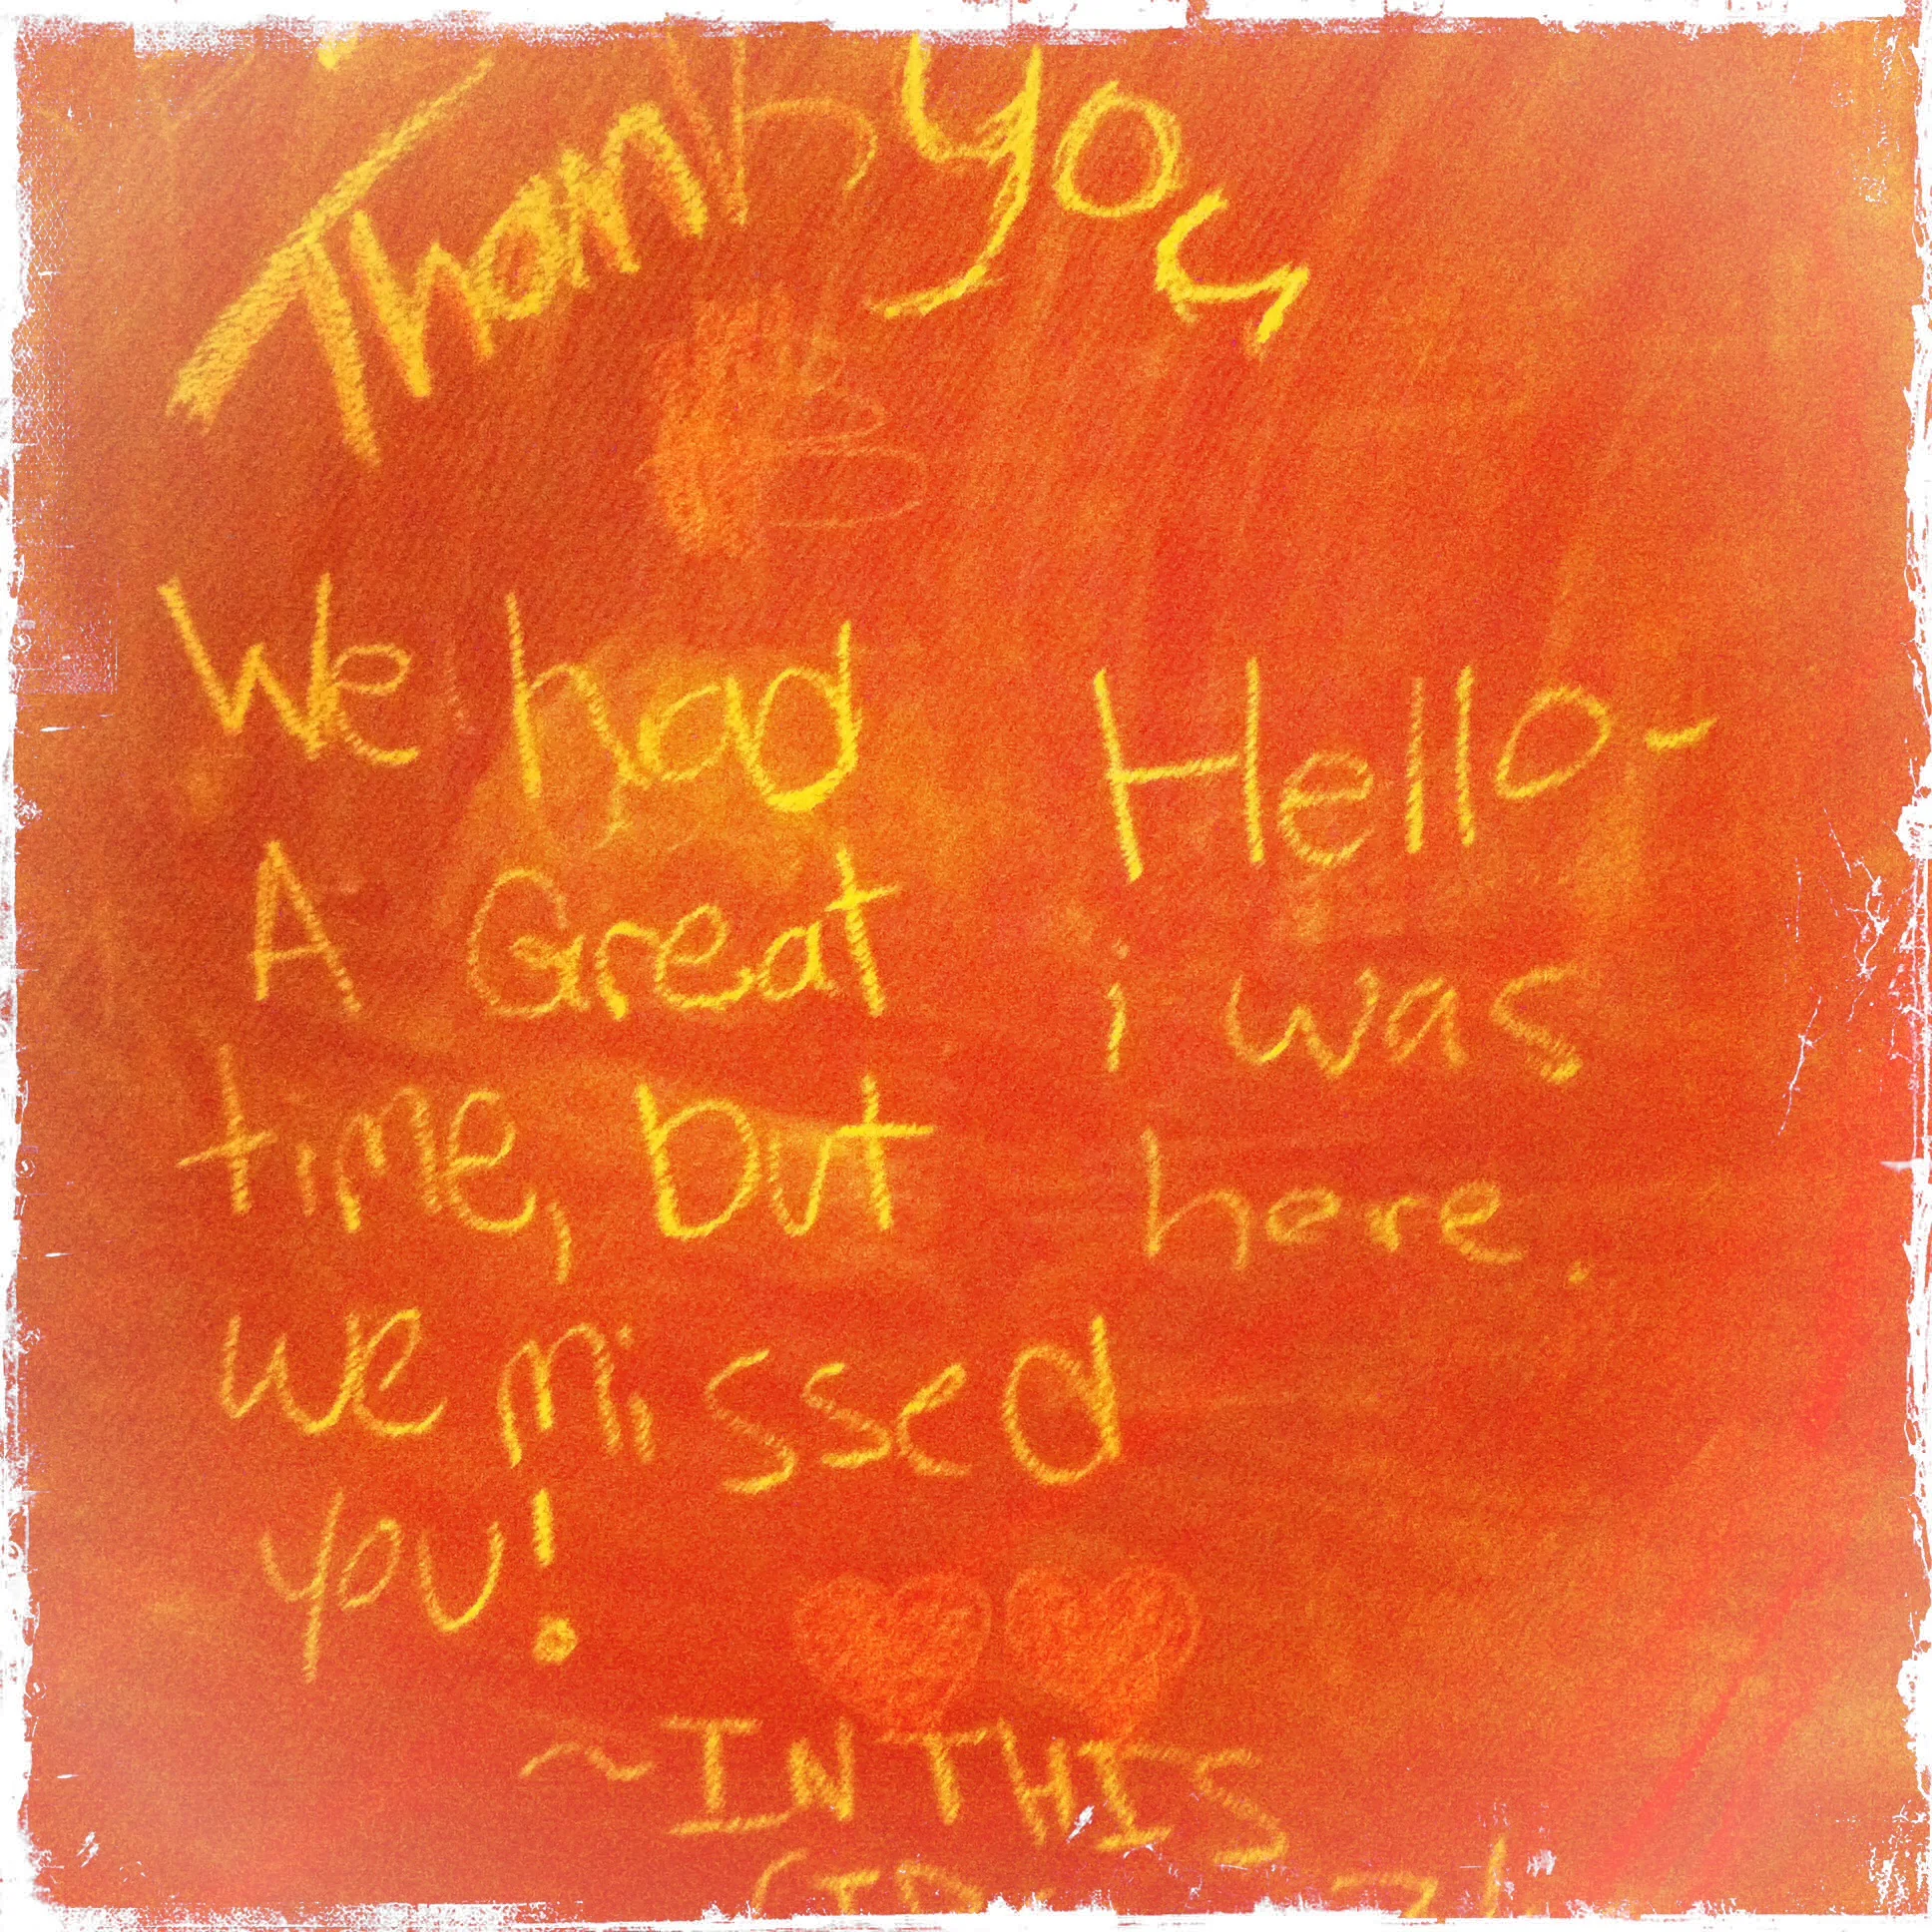 Thank you
We had
A Great
time, but
we missed
you!
Hello-
i was
here.
~IN THIS